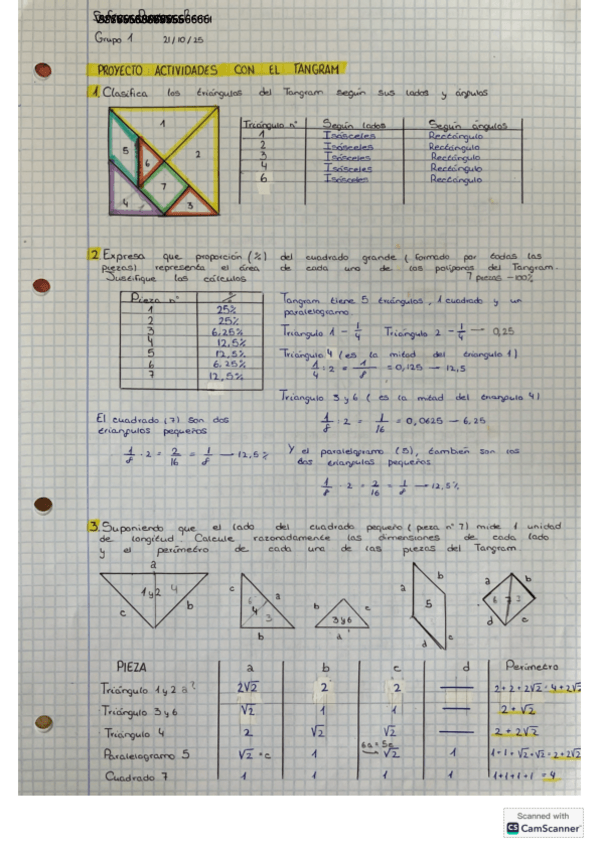 Grupo 1 21/10/25
PROYECTO ACTIVIDADES CON EL TANGRAM
1. Clasifica los triángulos del Tangram según sus lados y ángulos
1
2
3
4
5
6
7
Triángulo nº Según lados Según ángulos
1 Isósceles Rectángulo
2 Isósceles Rectángulo
3 Isósceles Rectángulo
4 Isósceles Rectángulo
6 Isósceles Rectángulo
2. Expresa que proporción (%) del cuadrado grande (formado por todas las
piezas) representa el área de cada uno de los polígonos del Tangram.
Justifique los cálculos 7 piezas - 100%
Pieza nº %
1 25%
2 25%
3 6,25%
4 12,5%
5 12,5%
6 6,25%
7 12,5%
Tangram tiene 5 triángulos, 1 cuadrado y un
paralelogramo.
Triangulo 1 - 1/4 Triángulo 2 - 1/4 — 0,25
Triángulo 4 (es la mitad del triangulo 1)
1/4 : 2 = 1/8 = 0,125 — 12,5
Triangulo 3 y 6 (es la mitad del triangulo 4)
1/8 : 2 = 1/16 = 0,0625 — 6,25
El cuadrado (7) son dos
triangulos pequeños
1/8 · 2 = 2/16 = 1/8 — 12,5%
Y el paralelogramo (5), también son los
dos triangulos pequeños
1/8 · 2 = 2/16 = 1/8 — 12,5%
3. Suponiendo que el lado del cuadrado pequeño (pieza nº 7) mide 1 unidad
de longitud. Calcule razonadamente las dimensiones de cada lado
y el perímetro de cada una de las piezas del Tangram
a 1 y 2 4 c b
c 6 a 4 3 b
b c 3 y 6 a
a b 5 d c
a b 6 7 3 d c
PIEZA a b c d Perímetro
Triángulo 1 y 2 2√2 2 2 — 2+2+2√2=4+2√2
Triángulo 3 y 6 √2 1 1 — 2+√2
Triángulo 4 2 √2 √2 — 2+2√2
Paralelogramo 5 √2 =c 1 √2 1 1+1+√2+√2=2+2√2
Cuadrado 7 1 1 1 1 1+1+1+1=4
Scanned with
CS CamScanner